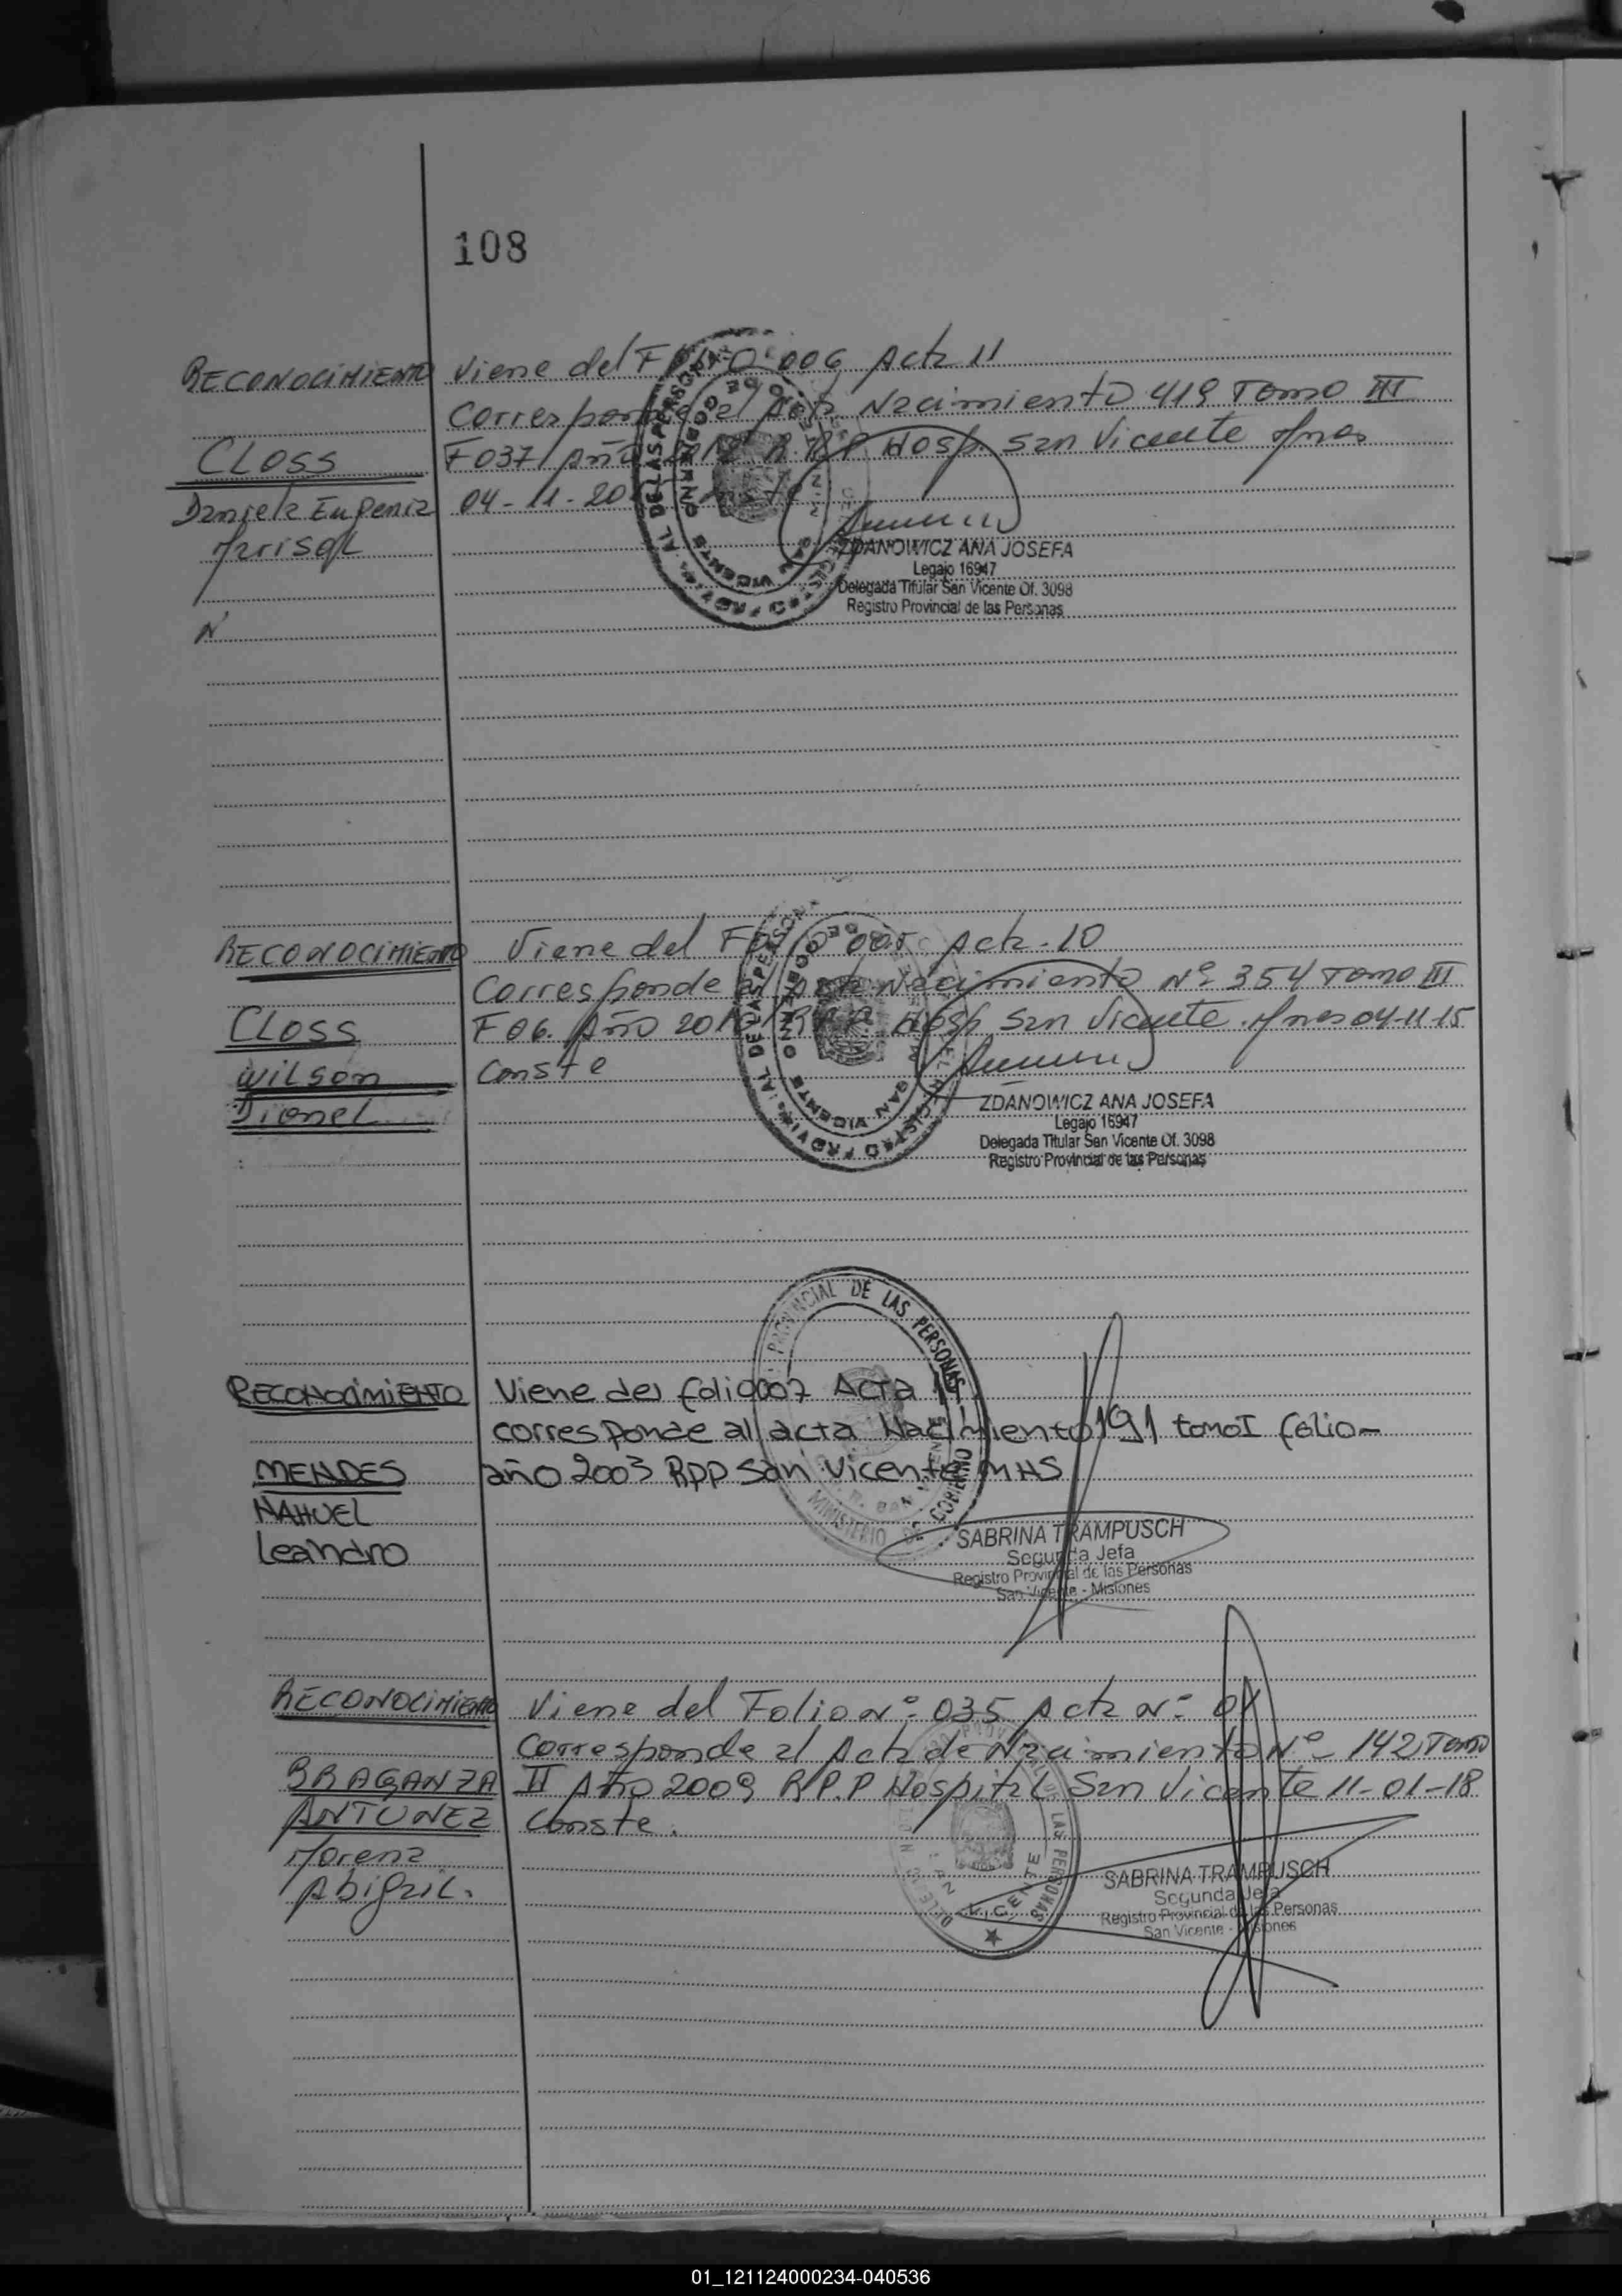 108
RECONOCIMIENTO Viene del FOLIO 006 Acta 11
Corresponde el Acta Nacimiento 419 Tomo III
CLOSS F037 Año R.P.P. Hosp. San Vicente Mnes
Daniela Eugenia 04-11-20
Marisol
ZDANOWICZ ANA JOSEFA
Legajo 16947
Delegada Titular San Vicente Of. 3098
Registro Provincial de las Personas
N
RECONOCIMIENTO Viene del Folio 005 Acta-10
Corresponde al Acta Nacimiento Nº 354 Tomo III
CLOSS F 06. Año 2010 R.P.P. Hosp San Vicente. Mnes 04-11-15
Wilson Conste
Dionel
ZDANOWICZ ANA JOSEFA
Legajo 16947
Delegada Titular San Vicente Of. 3098
Registro Provincial de las Personas
PROVINCIAL DE LAS PERSONAS
RECONOCIMIENTO Viene del folio 007 Acta
corresponde al acta Nacimiento 191 tomo I folio-
MENDES año 2003 RPP San Vicente MNS
NAHUEL
Leandro
MINISTERIO DE GOBIERNO
SABRINA TRAMPUSCH
Segunda Jefa
Registro Provincial de las Personas
San Vicente - Misiones
RECONOCIMIENTO Viene del Folio Nº 035 Acta Nº 01
Corresponde al Acta de Nacimiento Nº- 142 Tomo
BRAGANZA II Año 2009 R.P.P Hospital San Vicente 11-01-18
ANTUNEZ Conste.
Morena
Abigail.
SABRINA TRAMPUSCH
Segunda Jefa
Registro Provincial de las Personas
San Vicente - Misiones
01_121124000234-040536